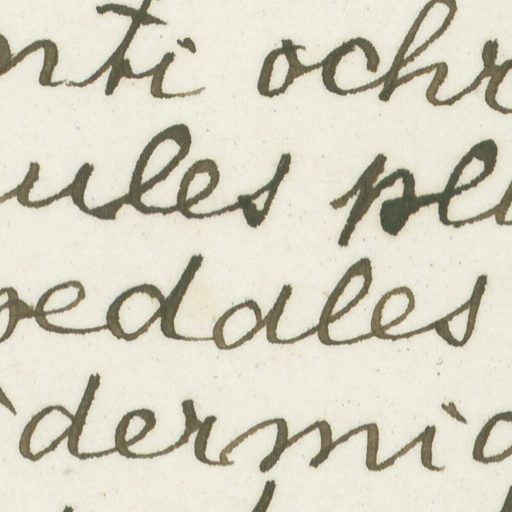 nti ochr
ules pl
pedales
dermi